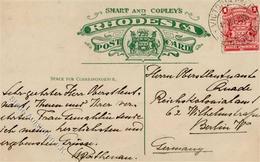 SMART AND COPLEY'S
RHODESIA
POST CARD
SPACE FOR CORRESPONDENCE.
Sehr geehrter Herr Oberstleut-
nant, Ihnen und Ihrer ver-
ehrten Frau Gemahlin sende
ich meine herzlichsten und
ergebensten Grüsse.
Herrn Oberstleutnant
Quade
Reichskolonialamt
62 Wilhelmstraße
Berlin
Germany